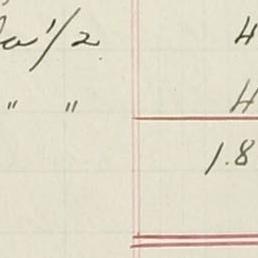 1/2 4
" " 4
1.8